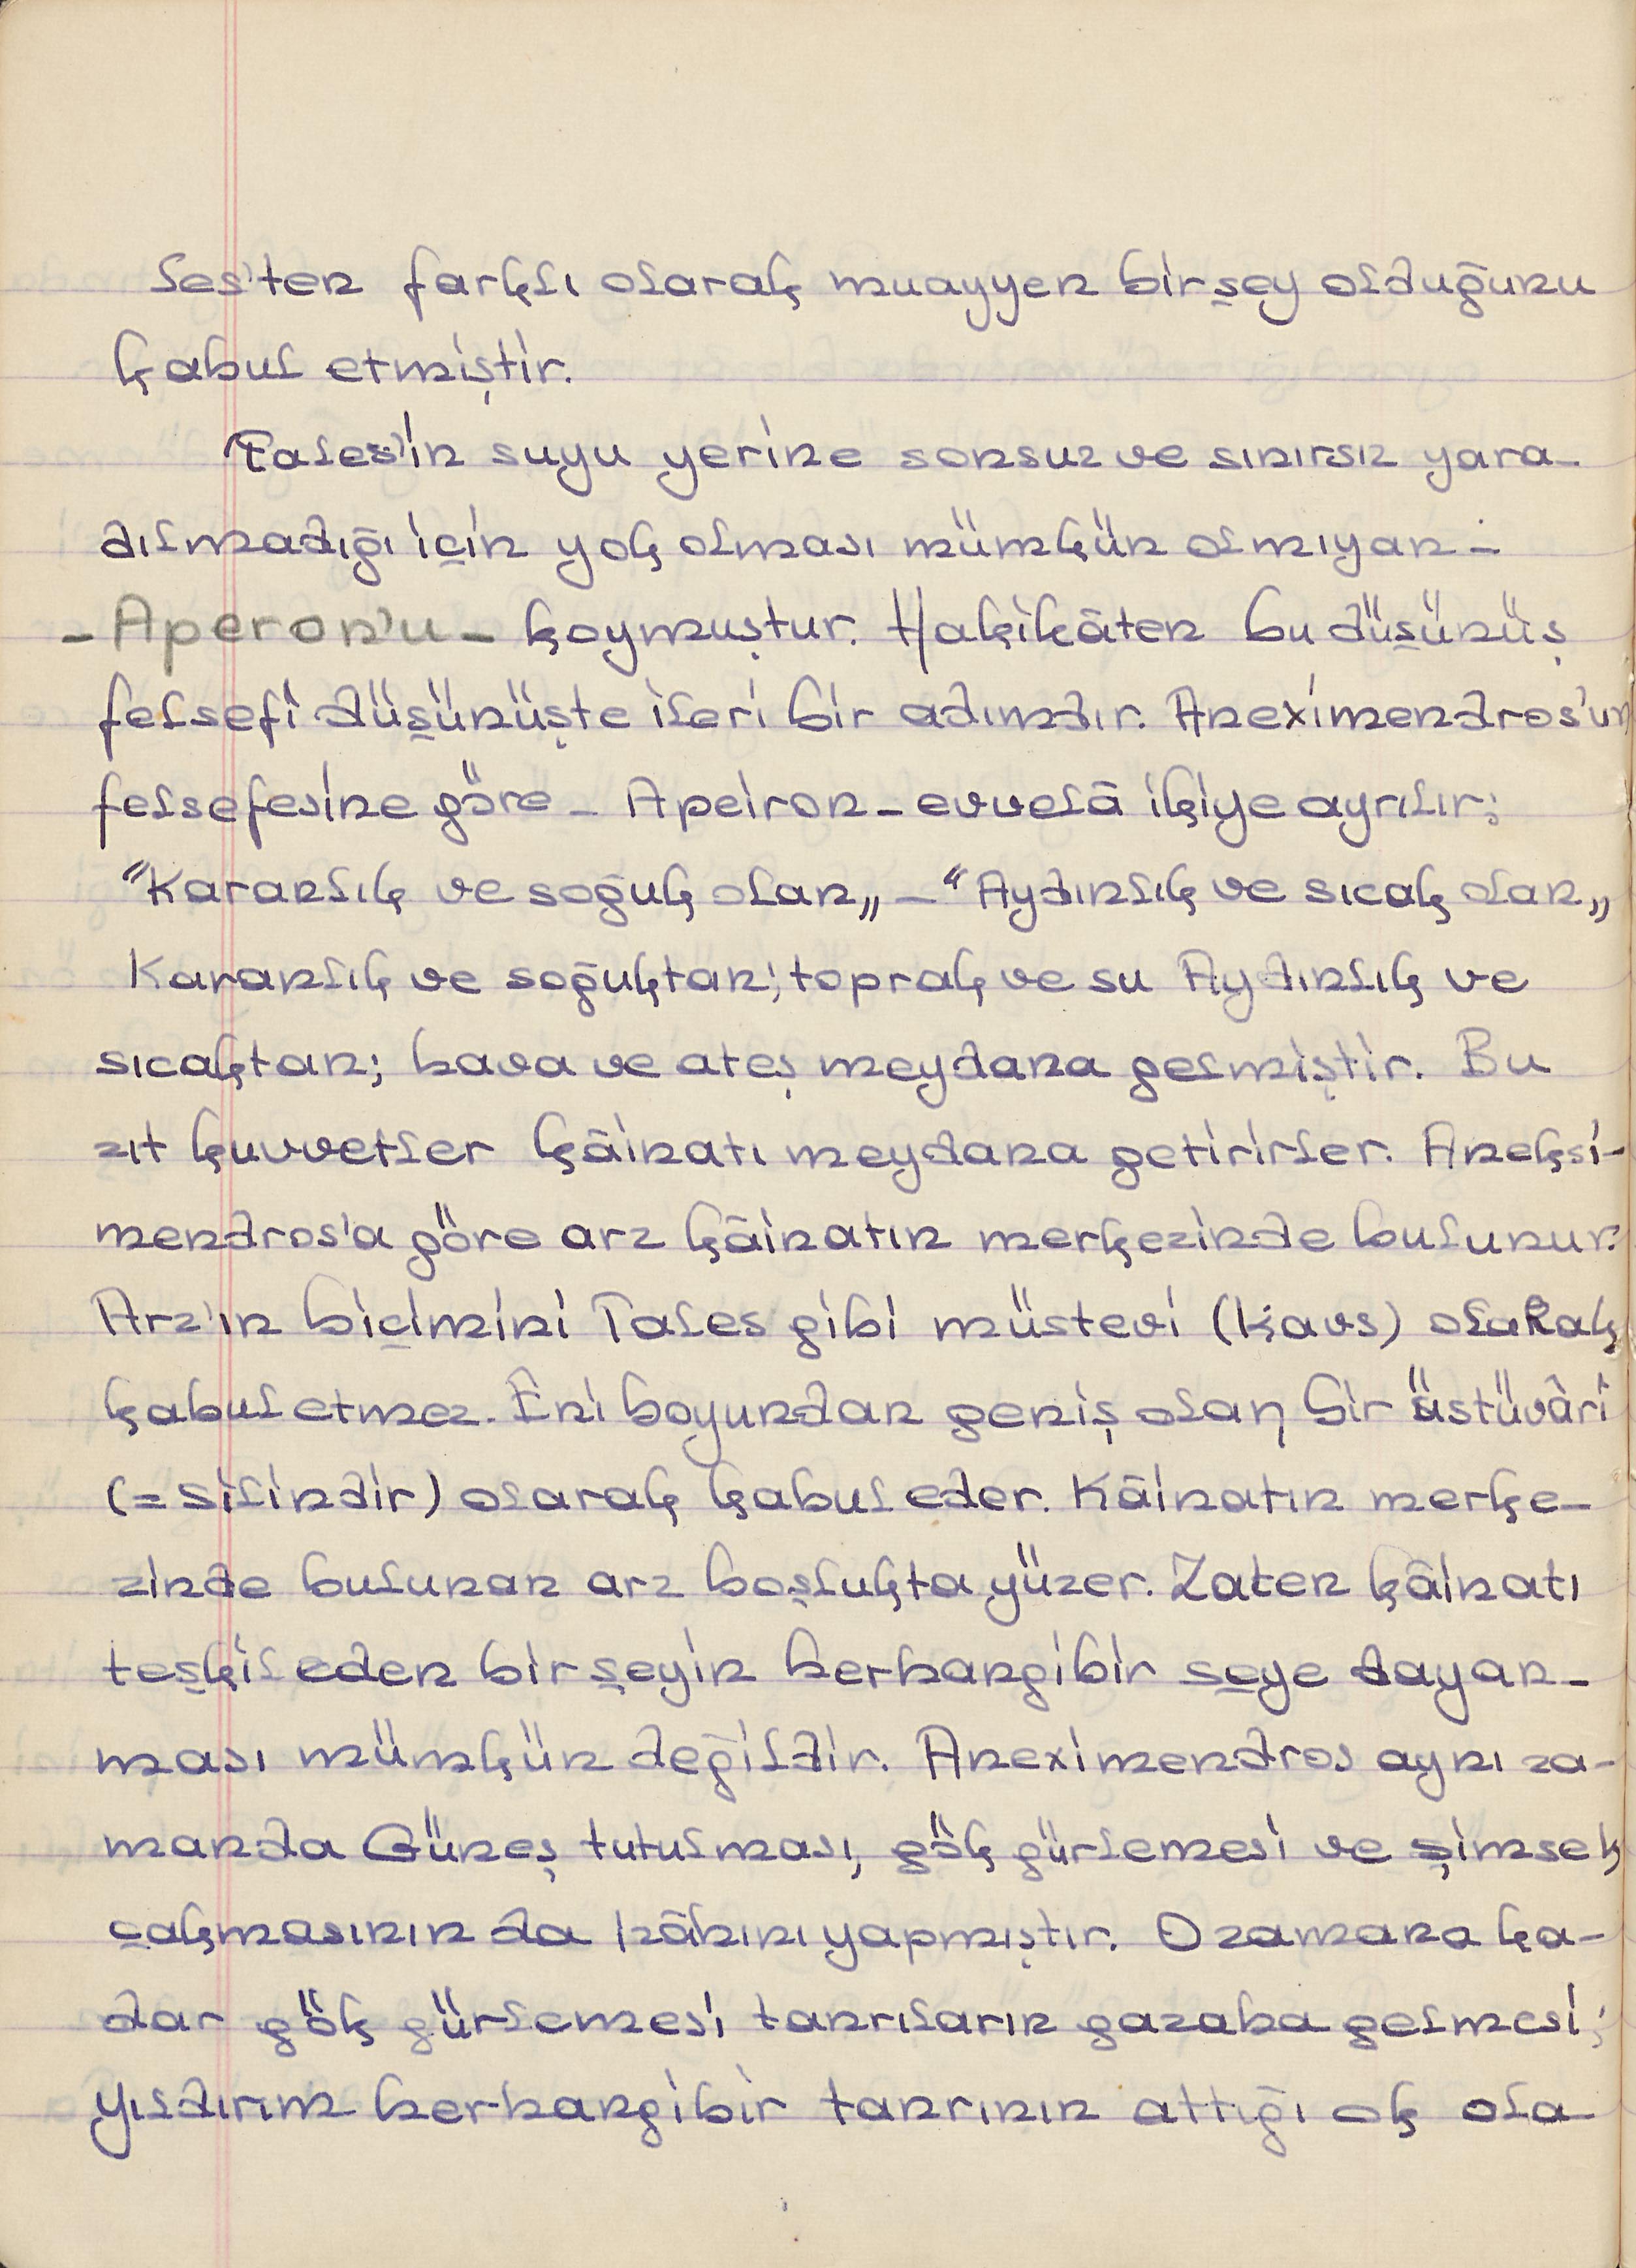 les'ten farklı olarak muayyen birşey olduğunu
kabul etmiştir.
Tales'in suyu yerine sonsuz ve sınırsız yara-
dılmadığı için yok olması mümkün olmıyan -
- Aperon'u - koymuştur. Hakikâten bu düşünüş
felsefi düşünüşte ileri bir adımdır. Aneximendros'un
felsefesine göre - Apeiron - evvelâ ikiye ayrılır;
"Karanlık ve soğuk olan„ - "Aydınlık ve sıcak olan„
Karanlık ve soğuktan; toprak ve su Aydınlık ve
sıcaktan; hava ve ateş meydana gelmiştir. Bu
zıt kuvvetler kâinatı meydana getirirler. Aneksi-
mendros'a göre arz kâinatın merkezinde bulunur.
Arz'ın biçimini Tales gibi müstevi (kavs) olarak
kabul etmez. Eni boyundan geniş olan bir üstüvâri
(= silindir) olarak kabul eder. Kâinatın merke-
zinde bulunan arz boşlukta yüzer. Zaten kâinatı
teşkil eden bir şeyin herhangibir şeye dayan-
ması mümkün değildir. Aneximendros aynı za-
manda Güneş tutulması, gök gürlemesi ve şimsek
çakmasının da izâhını yapmıştır. O zamana ka-
dar gök gürlemesi tanrıların gazaba gelmesi;
yıldırım herhangibir tanrının attığı ok ola